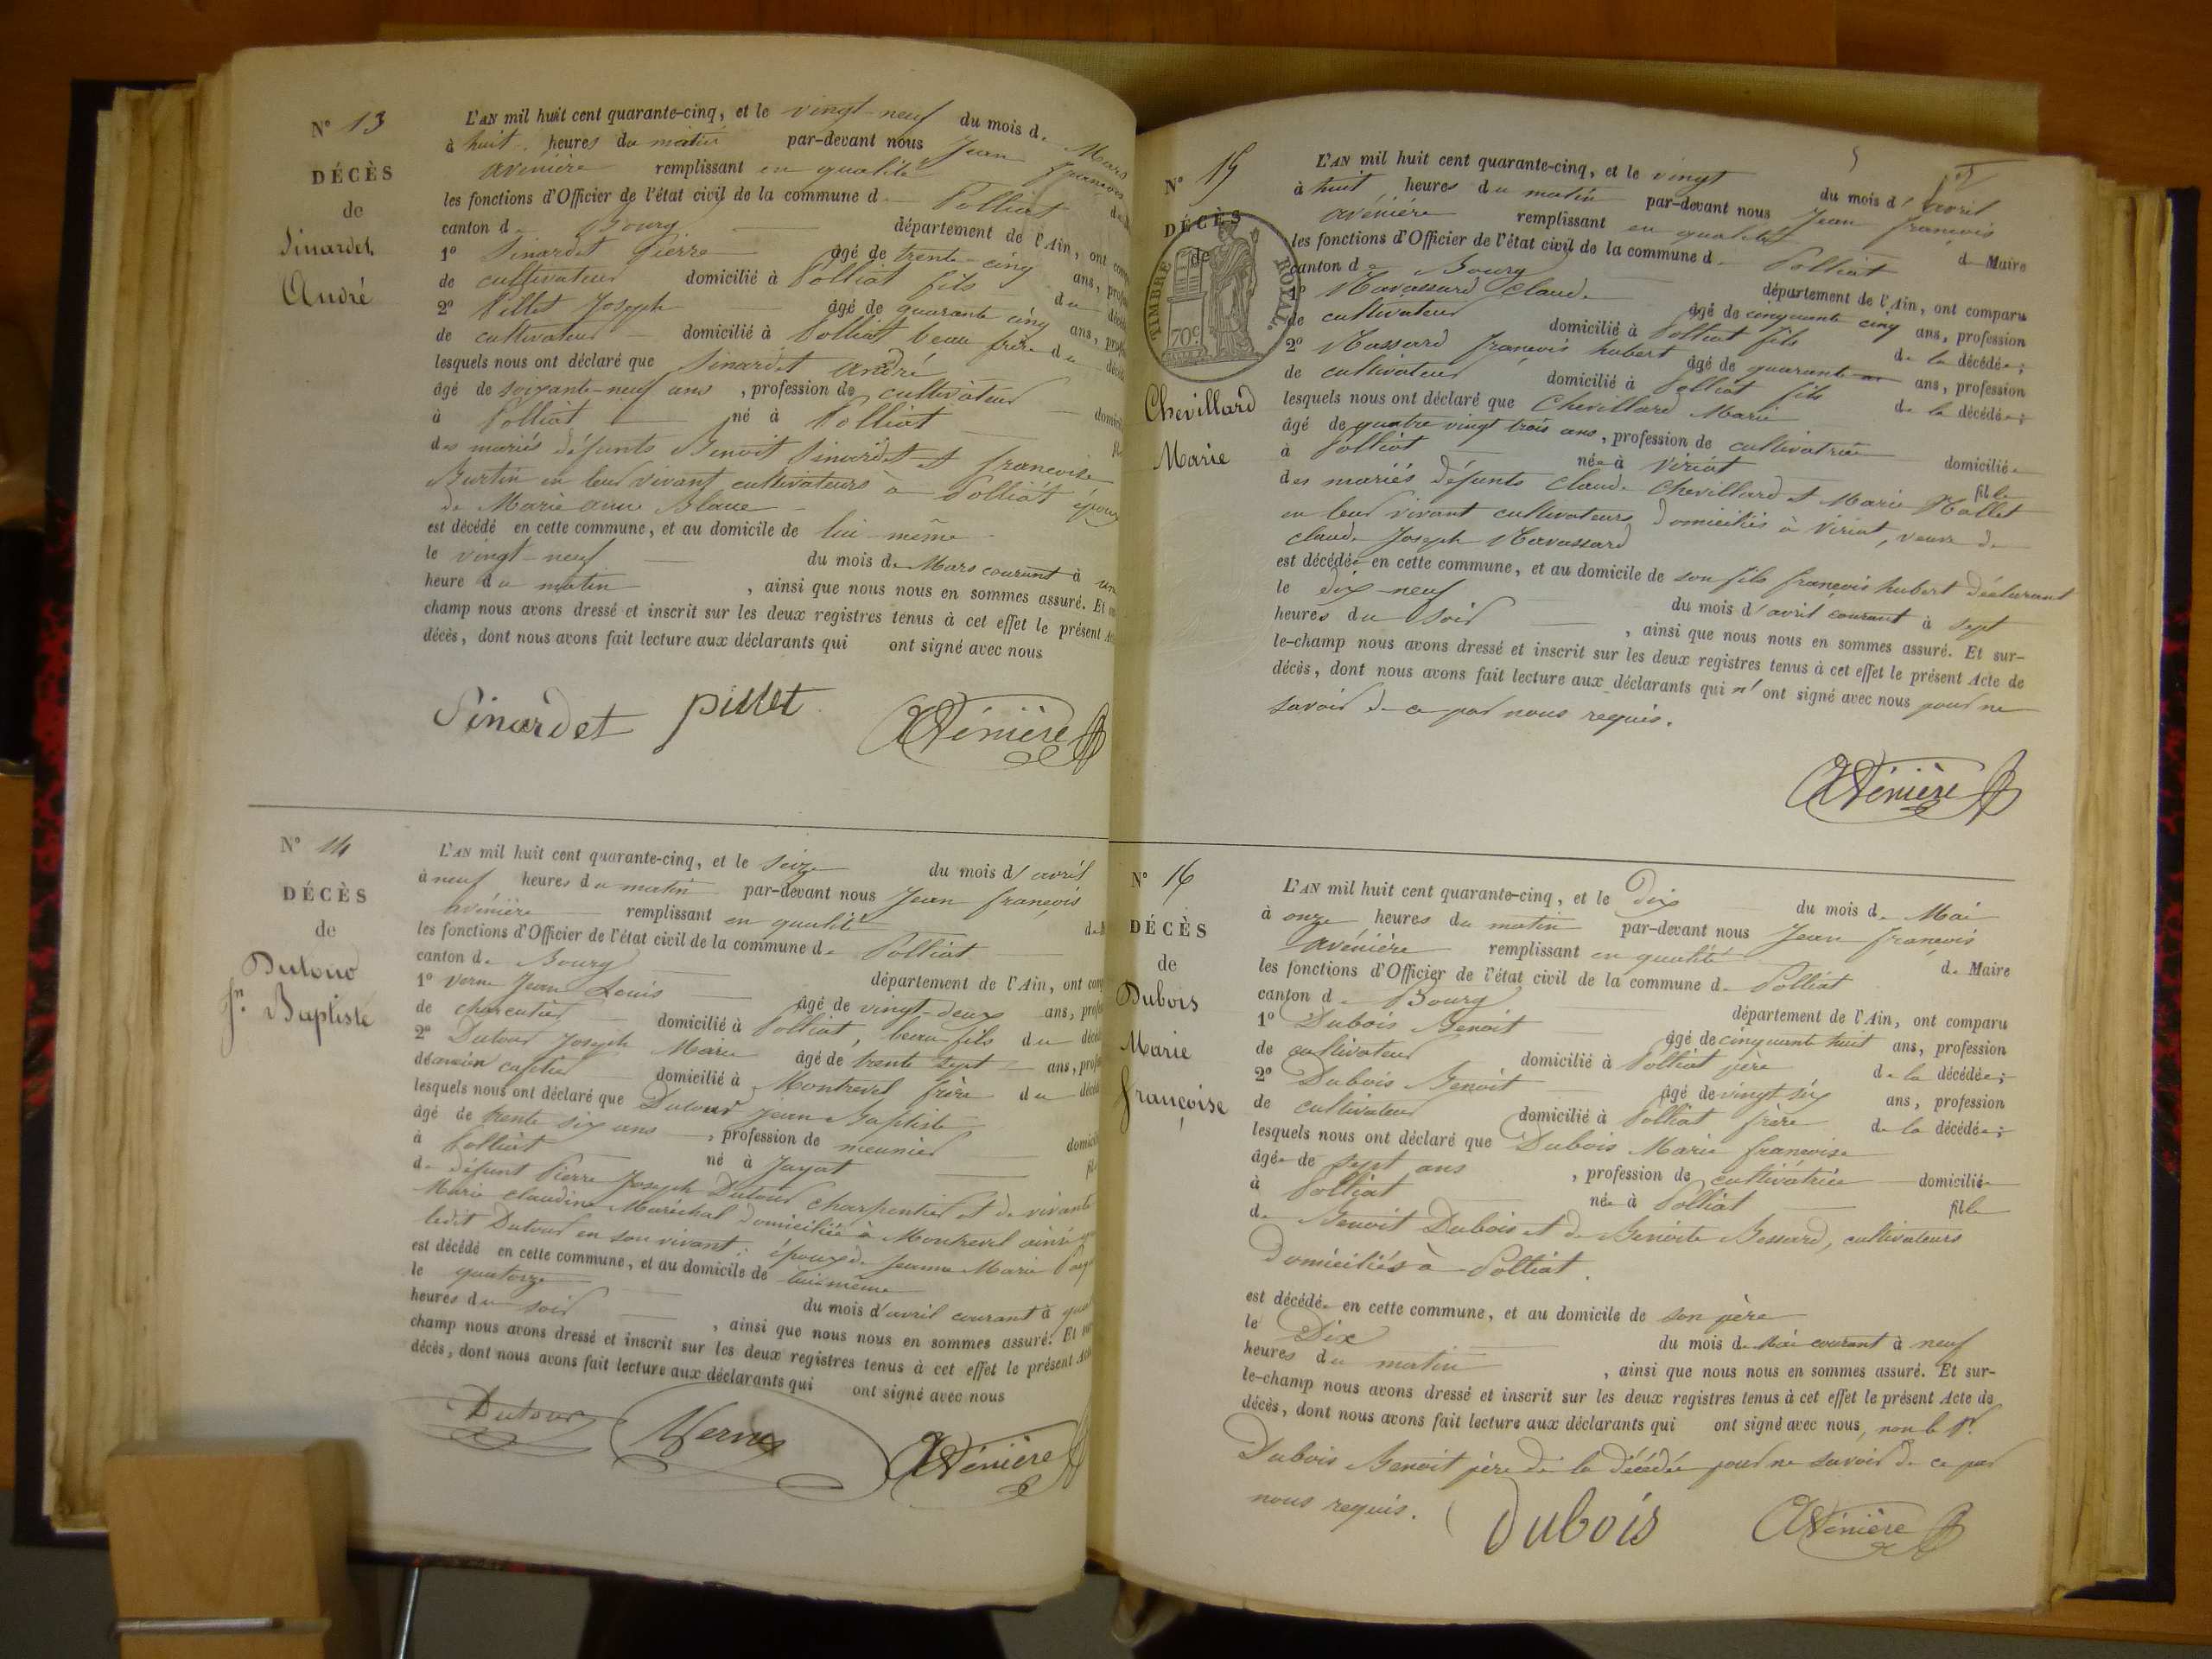 N° 13
DÉCÈS
de
Sinardet
André
L'AN mil huit cent quarante-cinq, et le vingt-neuf du mois de Mars
à huit heures du matin par-devant nous Jean françois
avénière remplissant en qualité
les fonctions d'Officier de l'état civil de la commune de Polliat
canton de Bourg département de l'Ain, ont
1° Sinardet Pierre âgé de trente-cinq ans,
de cultivateur domicilié à Polliat fils du
2° Pillet Joseph âgé de quarante cinq ans,
de cultivateur domicilié à Polliat beau frère du
lesquels nous ont déclaré que Sinardet andré
âgé de soixante-neuf ans, profession de cultivateur
à Polliat né à Polliat
des mariés défunts Benoit Sinardet et françoise
Burtin en leur vivant cultivateurs à Polliat époux
de Marie anne Blanc
est décédé en cette commune, et au domicile de lui-même
le vingt-neuf du mois de Mars courant à une
heure du matin, ainsi que nous nous en sommes assuré. Et
champ nous avons dressé et inscrit sur les deux registres tenus à cet effet le présent
décès, dont nous avons fait lecture aux déclarants qui ont signé avec nous
Sinardet pillet AVénière
N° 14
DÉCÈS
de
Dutour
Jn Baptiste
L'AN mil huit cent quarante-cinq, et le seize du mois d'avril
à neuf heures du matin par-devant nous Jean françois
avénière remplissant en qualité
les fonctions d'Officier de l'état civil de la commune de Polliat
canton de Bourg département de l'Ain, ont
1° Verne Jean Louis âgé de vingt-deux ans,
de charpentier domicilié à Polliat, beau-fils du
2° Dutour Joseph Marie âgé de trente sept ans,
domicilié à Montrevel frère du
lesquels nous ont déclaré que Dutour jean Baptiste
âgé de trente six ans, profession de meunier
à Polliat né à Jayat
de défunt Pierre Joseph Dutour charpentier et de vivante
Marie claudine Maréchal domiciliée à Montrevel ainsi
ledit Dutour en son vivant; époux de Jeanne Marie
est décédé en cette commune, et au domicile de lui-même
le quatorze du mois d'avril courant à
heures du soir, ainsi que nous nous en sommes assuré. Et
champ nous avons dressé et inscrit sur les deux registres tenus à cet effet le présent
décès, dont nous avons fait lecture aux déclarants qui ont signé avec nous
Dutour Verne AVénière
5
N° 15
DÉCÈS
de
TIMBRE ROYAL.
70c
Chevillard
Marie
L'AN mil huit cent quarante-cinq, et le vingt du mois d'avril
à huit heures du matin par-devant nous Jean françois
avénière remplissant en qualité de Maire
les fonctions d'Officier de l'état civil de la commune de Polliat
canton de Bourg département de l'Ain, ont comparu
1° Navassard Claude âgé de cinquante cinq ans, profession
de cultivateur domicilié à Polliat fils de la décédée;
2° françois hubert âgé de quarante ans, profession
de cultivateur domicilié à Polliat fils de la décédée;
lesquels nous ont déclaré que Chevillard Marie
âgé de quatre vingt trois ans, profession de cultivatrice domiciliée
à Polliat née à Viriat fille
des mariés défunts Claude Chevillard et Marie
en leur vivant cultivateurs domiciliés à Viriat, veuve de
claude Joseph Navassard
est décédée en cette commune, et au domicile de son fils françois hubert déclarant
le dix-neuf du mois d'avril courant à sept
heures du soir, ainsi que nous nous en sommes assuré. Et sur-
le-champ nous avons dressé et inscrit sur les deux registres tenus à cet effet le présent Acte de
décès, dont nous avons fait lecture aux déclarants qui n'ont signé avec nous pour ne
savoir de ce par nous requis.
AVénière
N° 16
DÉCÈS
de
Dubois
Marie
françoise
L'AN mil huit cent quarante-cinq, et le Dix du mois de Mai
à onze heures du matin par-devant nous Jean françois
avénière remplissant en qualité de Maire
les fonctions d'Officier de l'état civil de la commune de Polliat
canton de Bourg département de l'Ain, ont comparu
1° Dubois Benoit âgé de cinquante huit ans, profession
de cultivateur domicilié à Polliat père de la décédée;
2° Dubois Benoit âgé de vingt six ans, profession
de cultivateur domicilié à Polliat frère de la décédée;
lesquels nous ont déclaré que Dubois Marie françoise
âgée de sept ans, profession de cultivatrice domiciliée
à Polliat née à Polliat fille
de Benoit Dubois et de Benoite Bessard, cultivateurs
Domiciliés à Polliat.
est décédée en cette commune, et au domicile de son père
le Dix du mois de Mai courant à neuf
heures du matin, ainsi que nous nous en sommes assuré. Et sur-
le-champ nous avons dressé et inscrit sur les deux registres tenus à cet effet le présent Acte de
décès, dont nous avons fait lecture aux déclarants qui ont signé avec nous, non le Sr
Dubois Benoit père de la décédée pour ne savoir de ce par
nous requis. Dubois AVénière